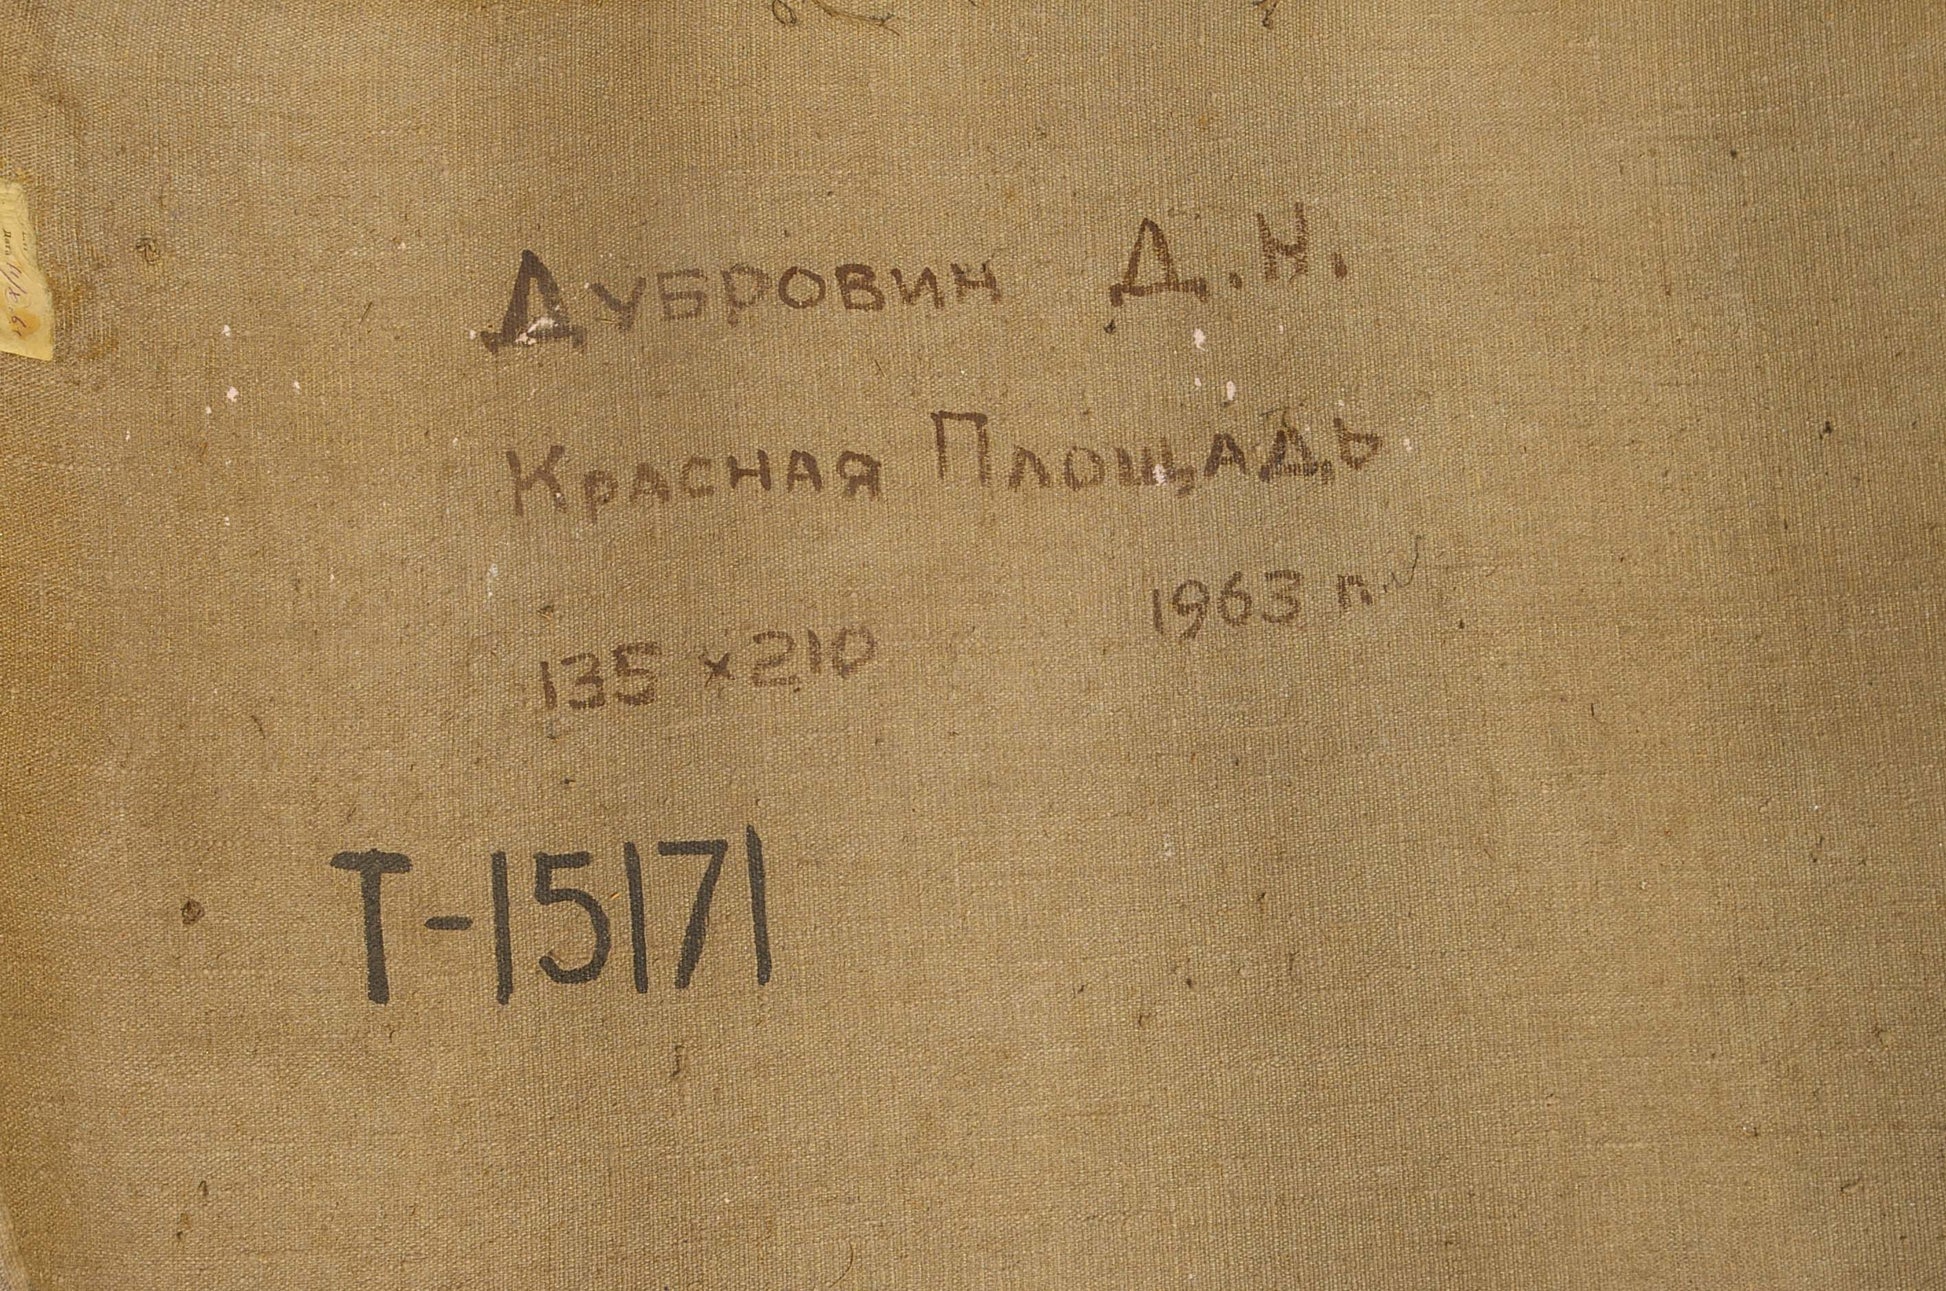 Дубровин Д. Н.
Красная Площадь
1963 г.
135 x 210
Т-15171